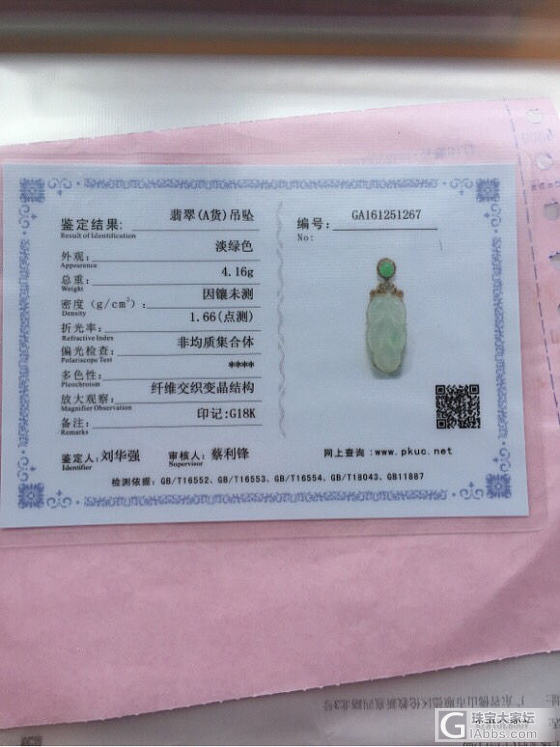 鉴定结果: 翡翠(A货)吊坠
Result of Identification
外观: 淡绿色
Appearance
总重: 4.16g
Weight
密度(g/cm³): 因镶未测
Density
折光率: 1.66(点测)
Refractive Index
偏光检查: 非均质集合体
Polariscope Test
多色性: ****
Pleochroism
放大观察: 纤维交织变晶结构
Magnifier Observation
备注: 印记:G18K
Remarks
鉴定人:刘华强 审核人:蔡利锋
Identifier Supervisor
编号: GA161251267
No:
网上查询:www.pkuc.net
检测依据: GB/T16552、GB/T16553、GB/T16554、GB/T18043、GB11887
广东省佛山市顺德区伦教新直四路北3号
珠宝大家坛
GIAbbs.com